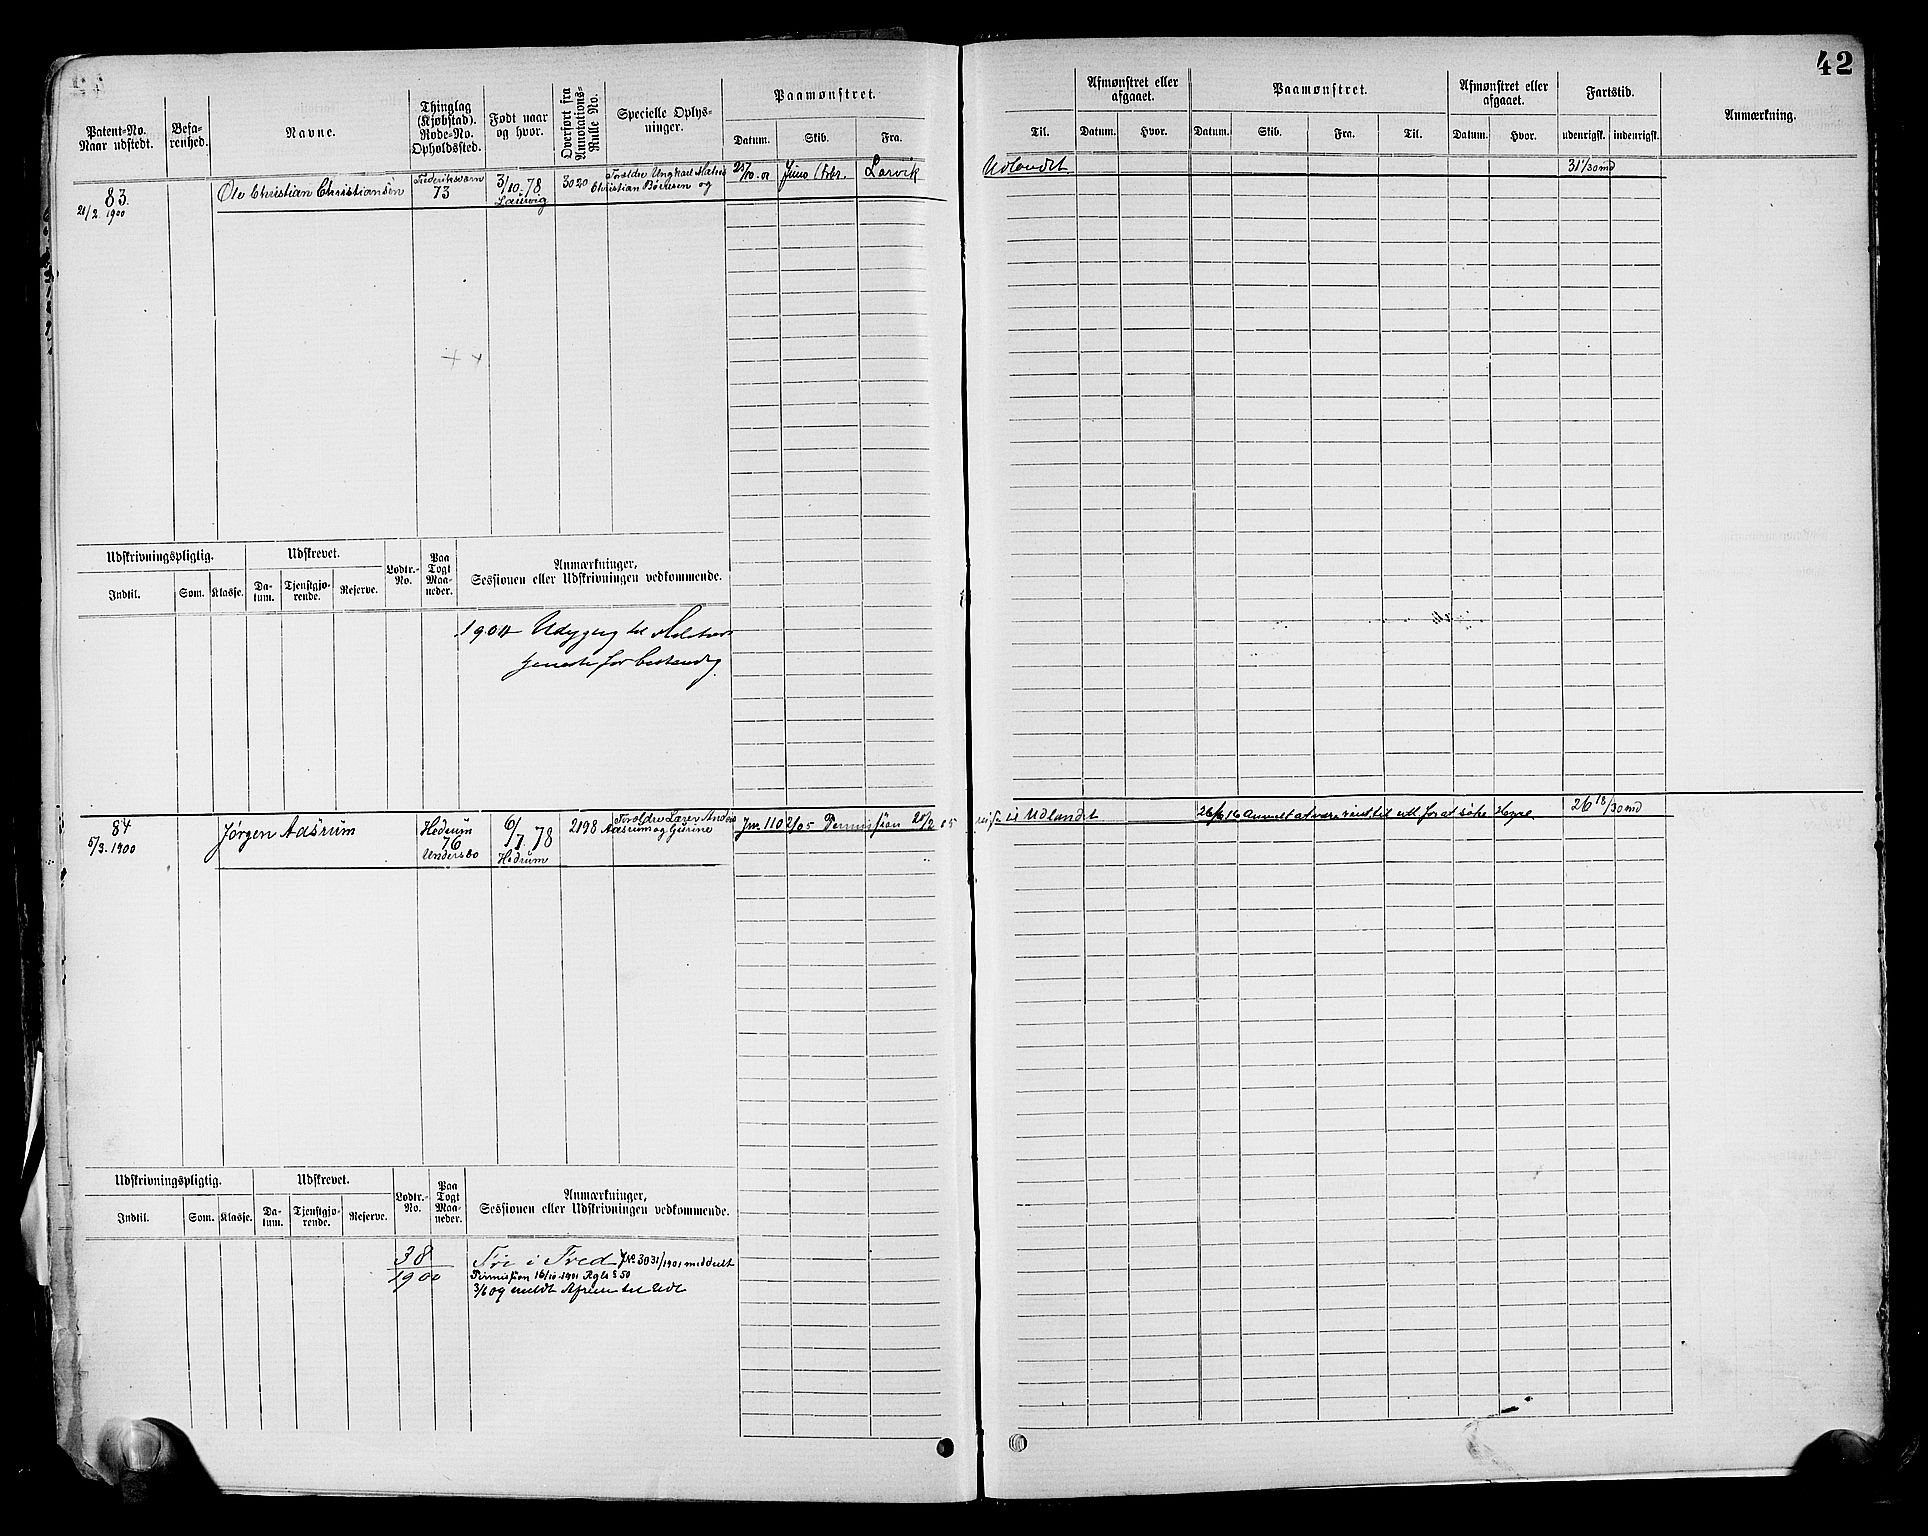 42
Patent-No. Naar udstedt.
Befarenhed.
Navne.
Thinglag (Kjøbstad). Rode-No. Opholdssted.
Født naar og hvor.
Overført fra Annotations-Rulle No.
Specielle Oplysninger.
Paamønstret.
Datum. Skib. Fra.
Til.
Afmønstret eller afgaaet.
Datum. Hvor.
Paamønstret.
Datum. Skib. Fra. Til.
Afmønstret eller afgaaet.
Datum. Hvor.
Fartstid.
udenrigsk. indenrigsk.
Anmærkning.
83.
21/2 1900
Ole Christian Christiansen
Frederiksværn
73
3/10.78.
Laurvig
3020
Forældre Ungkarl
Christian Børresen og
Larvik
Udlandet
31 1/30 md
Udskrivningspligtig.
Indtil. Som. Klasse.
Udskrevet.
Datum. Tjenstgjørende. Reserve.
Lodtr.-No.
Paa Togt Maaneder.
Anmærkninger,
Sessionen eller Udskrivningen vedkommende.
for bestandig.
84
5/3.1900
Jørgen Aasrum
Hedrum
76
Undersbo
6/7.78
Hedrum
2198
Forældre
Aasrum og Gurine
Jnr. 110 2/05 Permission 21/2 05
til Udlandet
26/6 16 Anmeldt at være reist til for at søke Hyre.
26 18/30 md
Udskrivningspligtig.
Indtil. Som. Klasse.
Udskrevet.
Datum. Tjenstgjørende. Reserve.
Lodtr.-No.
Paa Togt Maaneder.
Anmærkninger,
Sessionen eller Udskrivningen vedkommende.
38
1900
Fri i Fred JNo 3031/1901 meddelt
Permission 16/10 1901 Rgls § 50
3/6 09 meldt Afreise til Udl